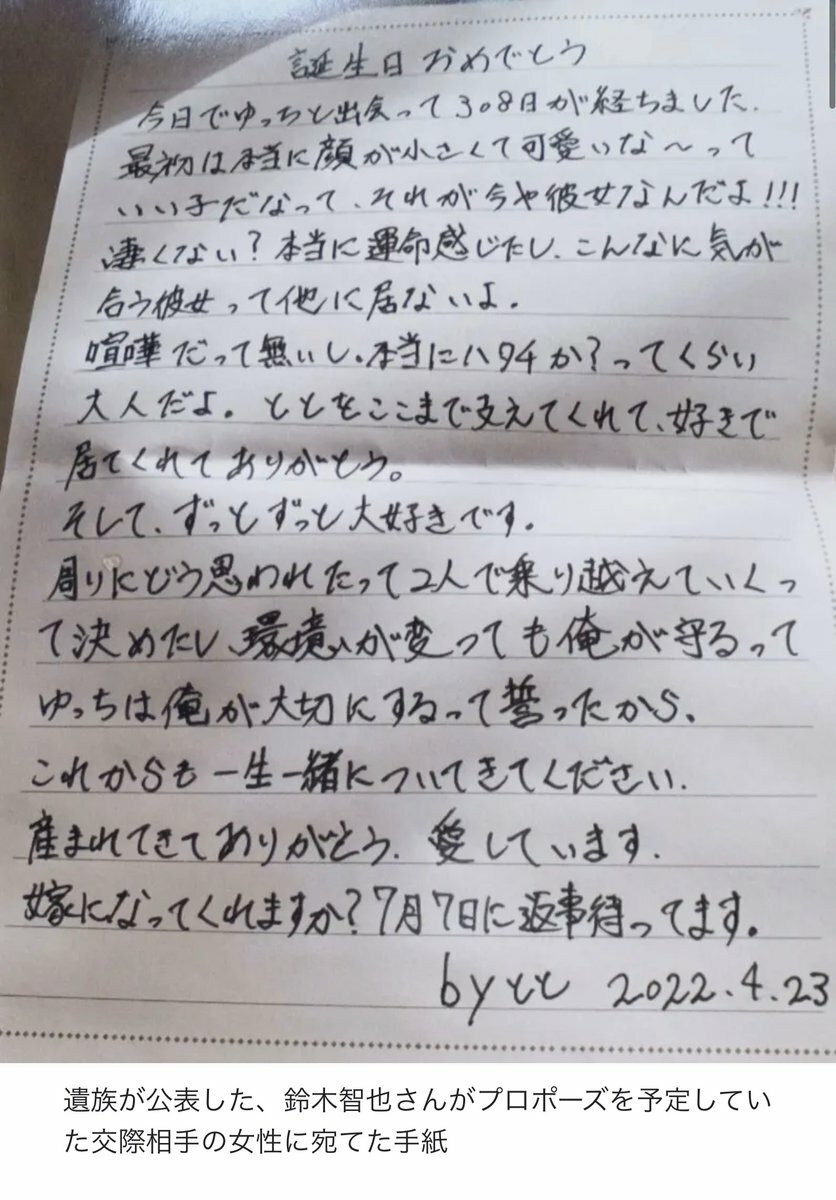 誕生日おめでとう
今日でゆっちと出会って308日が経ちました.
最初は本当に顔が小さくて可愛いな〜って
いい子だなって、それが今や彼女なんだよ!!!
凄くない?本当に運命感じたし、こんなに気が
合う彼女って他に居ないよ.
喧嘩だって無いし、本当にハタチか?ってくらい
大人だよ。ととをここまで支えてくれて、好きで
居てくれてありがとう。
そして、ずっとずっと大好きです.
周りにどう思われたって2人で乗り越えていくっ
て決めたし、環境が変っても俺が守るって
ゆっちは俺が大切にするって誓ったから、
これからも一生一緒についてきてください.
産まれてきてありがとう.愛しています.
嫁になってくれますか?7月7日に返事待ってます。
byとと 2022.4.23
遺族が公表した、鈴木智也さんがプロポーズを予定してい
た交際相手の女性に宛てた手紙